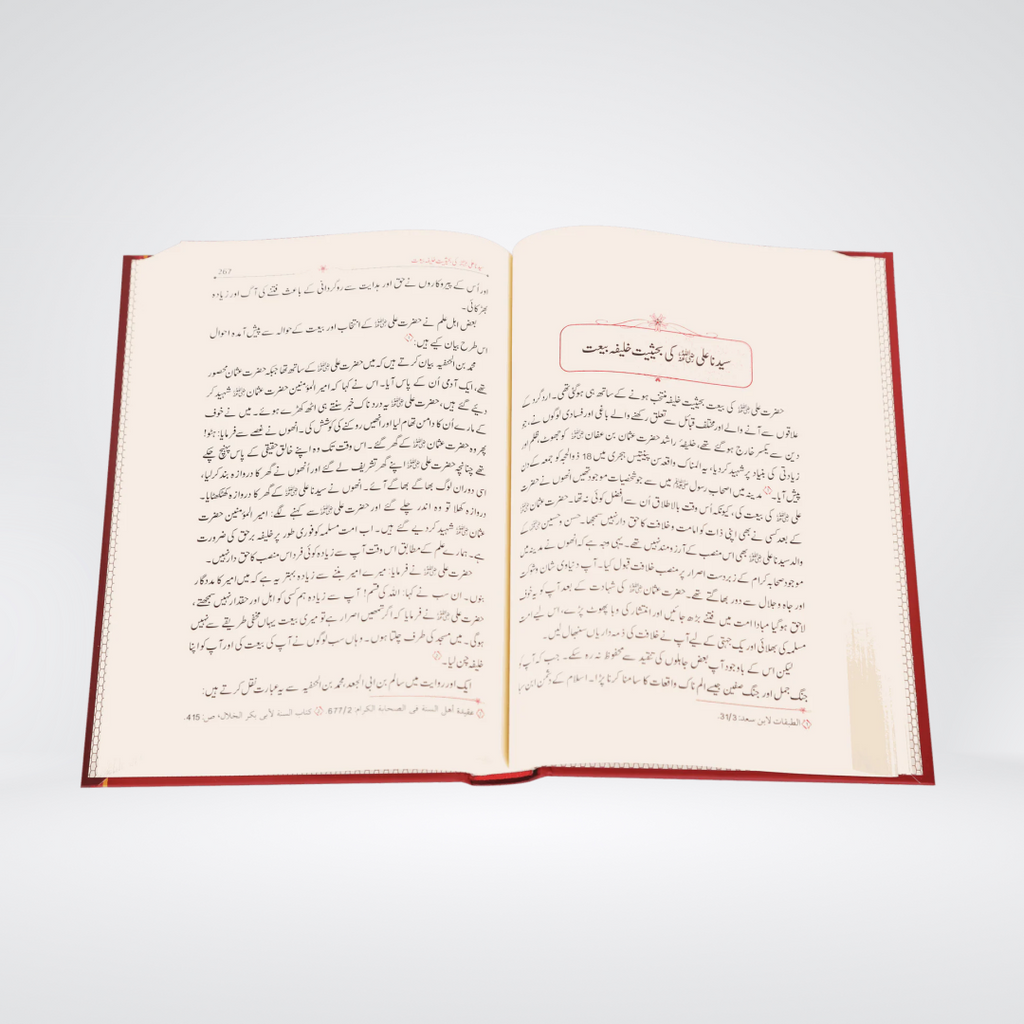 سیدنا علی ﷺ کی بحیثیت خلیفہ بیعت
حضرت علی کی بیعت بحیثیت خلیفہ منتخب ہونے کے ساتھ ہی ہو گئی تھی۔ اردگرد کے
علاقوں سے آنے والے اور مختلف قبائل سے تعلق رکھنے والے باغی اور فسادی لوگوں نے، جو
دین سے یکسر خارج ہو گئے تھے، خلیفۂ راشد حضرت عثمان بن عفان کو جھوٹ، ظلم اور
زیادتی کی بنیاد پر شہید کر دیا، یہ المناک واقعہ سن پینتیس ہجری میں 18 ذوالحجہ کو جمعہ کے دن
پیش آیا۔ مدینہ میں اصحاب رسول ﷺ میں سے جو شخصیات موجود تھیں انھوں نے حضرت
علی کی بیعت کی، کیونکہ اُس وقت بالاطلاق اُن سے افضل کوئی نہ تھا۔ حضرت عثمان
کے بعد کسی نے بھی اپنی ذات کو امامت و خلافت کا حق دار نہیں سمجھا۔ حسن و حسین کے
والد سیدنا علی بھی اس منصب کے آرزو مند نہیں تھے۔ یہی وجہ ہے کہ انھوں نے مدینہ میں
موجود صحابہ کرام کے زبردست اصرار پر منصب خلافت قبول کیا۔ آپ دنیاوی شان و شوکت
اور جاہ و جلال سے دور بھاگتے تھے۔ حضرت عثمان کی شہادت کے بعد آپ کو یہ خوف
لاحق ہو گیا مبادا امت میں فتنے بڑھ جائیں اور انتشار کی وبا پھوٹ پڑے، اس لیے امت
مسلمہ کی بھلائی اور یک جہتی کے لیے آپ نے خلافت کی ذمہ داریاں سنبھال لیں۔
لیکن اس کے باوجود آپ بعض جاہلوں کی تنقید سے محفوظ نہ رہ سکے۔ جب کہ آپ کو
جنگ جمل اور جنگ صفین جیسے الم ناک واقعات کا سامنا کرنا پڑا۔ اسلام کے دشمن ابن سبا
الطبقات لابن سعد: 31/3.
سیدنا علی کی بحیثیت خلیفہ بیعت
267
اور اُس کے پیروکاروں نے حق اور ہدایت سے روگردانی کے باعث فتنے کی آگ اور زیادہ
بھڑکائی۔
بعض اہل علم نے حضرت علی کے انتخاب اور بیعت کے حوالہ سے پیش آمدہ احوال
اس طرح بیان کیے ہیں:
محمد بن الحنفیہ بیان کرتے ہیں کہ میں حضرت علی کے ساتھ تھا جبکہ حضرت عثمان محصور
تھے، ایک آدمی اُن کے پاس آیا۔ اس نے کہا کہ امیر المؤمنین حضرت عثمان شہید کر
دیے گئے ہیں، حضرت علی یہ دردناک خبر سنتے ہی اٹھ کھڑے ہوئے۔ میں نے خوف
کے مارے اُن کا دامن تھام لیا اور انھیں روکنے کی کوشش کی۔ انھوں نے غصے سے فرمایا: ہٹو!
پھر وہ حضرت عثمان کے گھر گئے۔ اس وقت تک وہ اپنے خالق حقیقی کے پاس پہنچ چکے
تھے چنانچہ حضرت علی اپنے گھر تشریف لے گئے اور انھوں نے گھر کا دروازہ بند کر لیا،
اسی دوران لوگ بھاگے بھاگے آئے۔ انھوں نے سیدنا علی کے گھر کا دروازہ کھٹکھٹایا۔
دروازہ کھلا تو وہ اندر چلے گئے اور حضرت علی سے کہنے لگے: امیر المؤمنین حضرت
عثمان شہید کر دیے گئے ہیں۔ اب امت مسلمہ کو فوری طور پر خلیفہ برحق کی ضرورت
ہے۔ ہمارے علم کے مطابق اس وقت آپ سے زیادہ کوئی فرد اس منصب کا حق دار نہیں۔
حضرت علی نے فرمایا: میرے امیر بننے سے زیادہ بہتر یہ ہے کہ میں امیر کا مددگار
بنوں۔ ان سب نے کہا: اللہ کی قسم! آپ سے زیادہ ہم کسی کو اہل اور حقدار نہیں سمجھتے،
حضرت علی نے فرمایا کہ اگر تمھیں اصرار ہے تو میری بیعت یہاں مخفی طریقے سے نہیں
ہوگی۔ میں مسجد کی طرف چلتا ہوں۔ وہاں سب لوگوں نے آپ کی بیعت کی اور آپ کو اپنا
خلیفہ چن لیا۔
ایک اور روایت میں سالم بن ابی الجعد، محمد بن الحنفیہ سے یہ عبارت نقل کرتے ہیں:
عقیدة أهل السنة فی الصحابة الکرام: 677/2. کتاب السنة لأبی بکر الخلال، ص: 415.